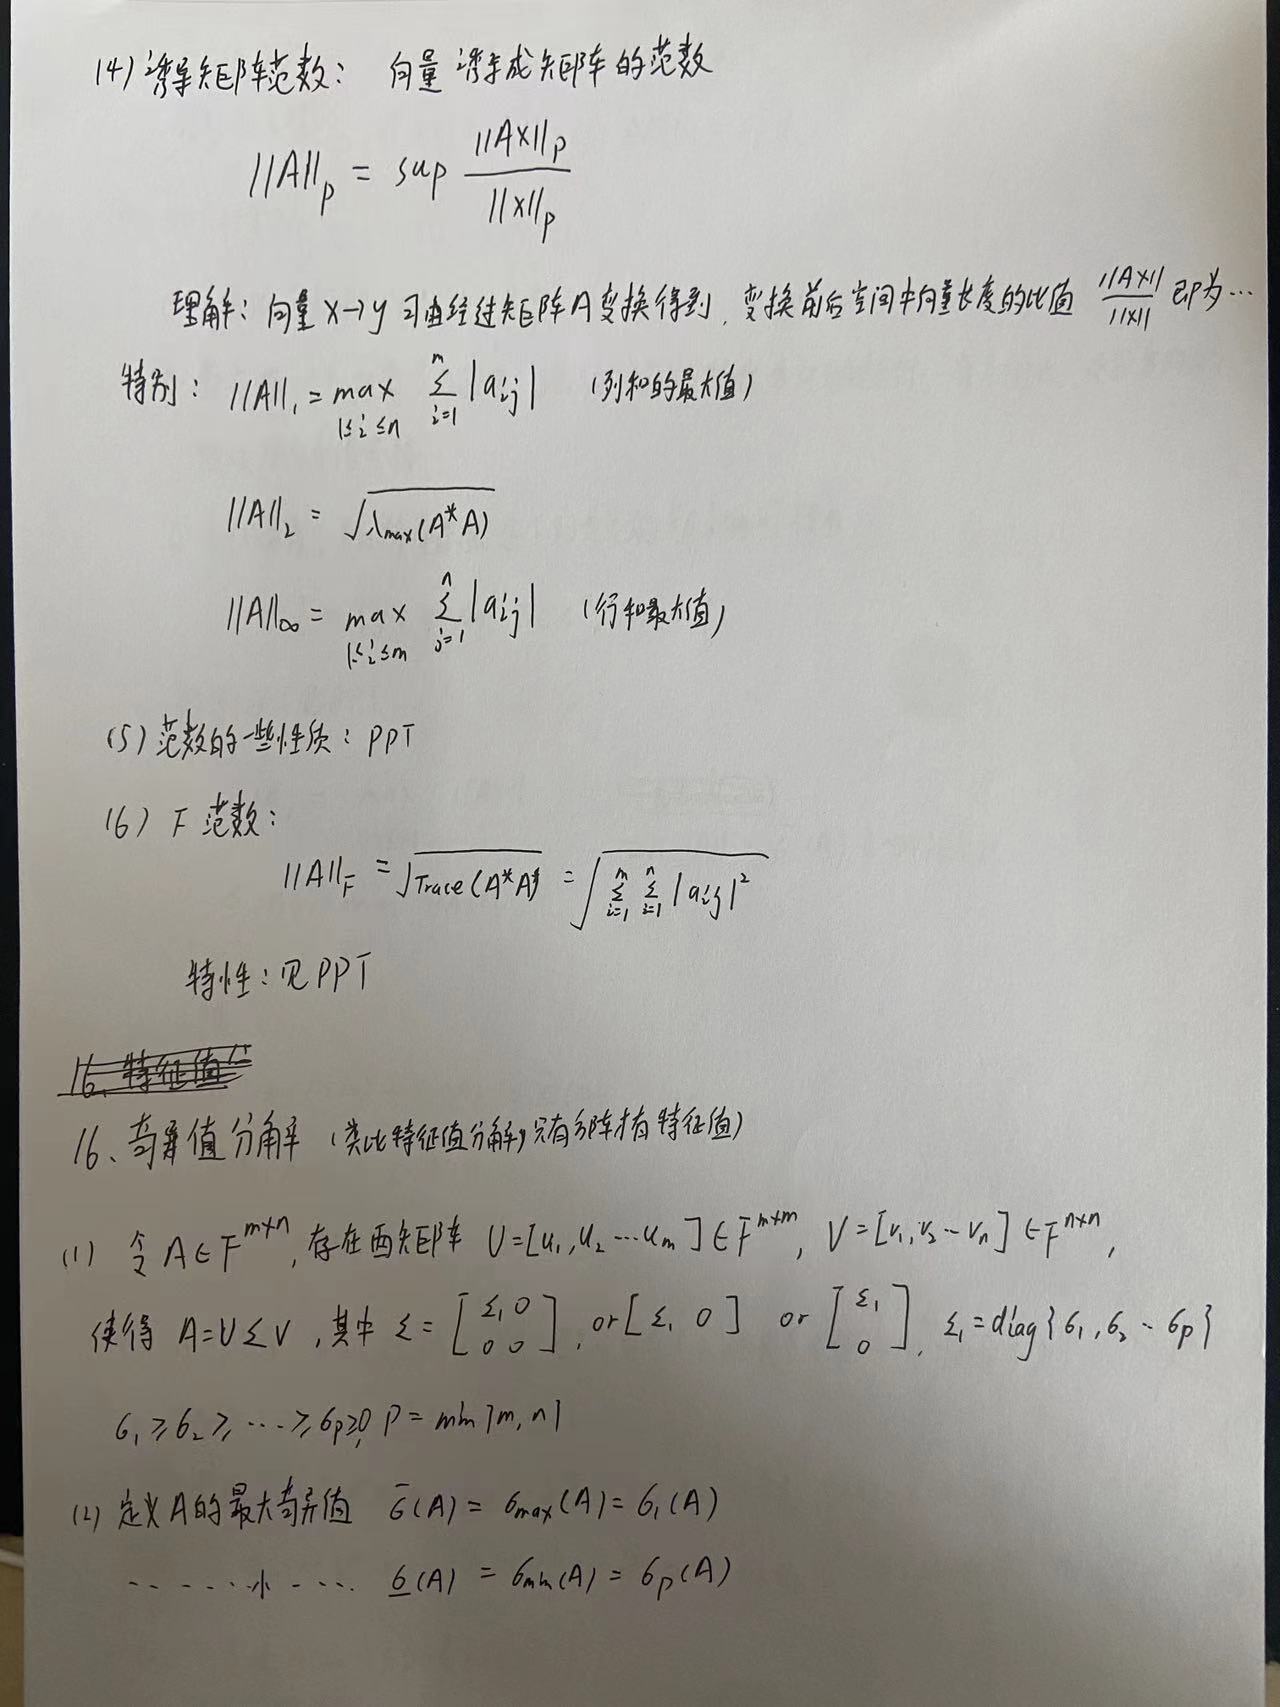 (4) 诱导矩阵范数： 向量诱导成矩阵的范数
||A||_p = sup ||Ax||_p / ||x||_p
理解：向量 x→y 可由经过矩阵A变换得到，变换前后空间中向量长度的比值 ||Ax|| / ||x|| 即为…
特别： ||A||_1 = max_{1≤i≤n} Σ_{i=1}^{m} |a_{ij}| (列和的最大值)
||A||_2 = √(λ_max(A*A))
||A||_∞ = max_{1≤i≤m} Σ_{j=1}^{n} |a_{ij}| (行和最大值)
(5) 范数的一些性质：PPT
(6) F 范数：
||A||_F = √(Trace(A*A)) = √(Σ_{i=1}^{m} Σ_{i=1}^{n} |a_{ij}|²)
特性：见PPT
16、特征值
16、奇异值分解 (类比特征值分解，只有方阵才有特征值)
(1) 令 A∈F^{m×n}, 存在酉矩阵 U=[u_1, u_2 … u_m]∈F^{m×m}, V=[v_1, v_2 … v_n]∈F^{n×n},
使得 A=UΣV, 其中 Σ=[Σ_1 0; 0 0], or [Σ_1 0] or [Σ_1; 0], Σ_1=diag{σ_1, σ_2 … σ_p}
σ_1≥σ_2≥…≥σ_p≥0, p=min{m, n}
(2) 定义A的最大奇异值 σ̄(A) = σ_max(A) = σ_1(A)
……小…… σ̲(A) = σ_min(A) = σ_p(A)